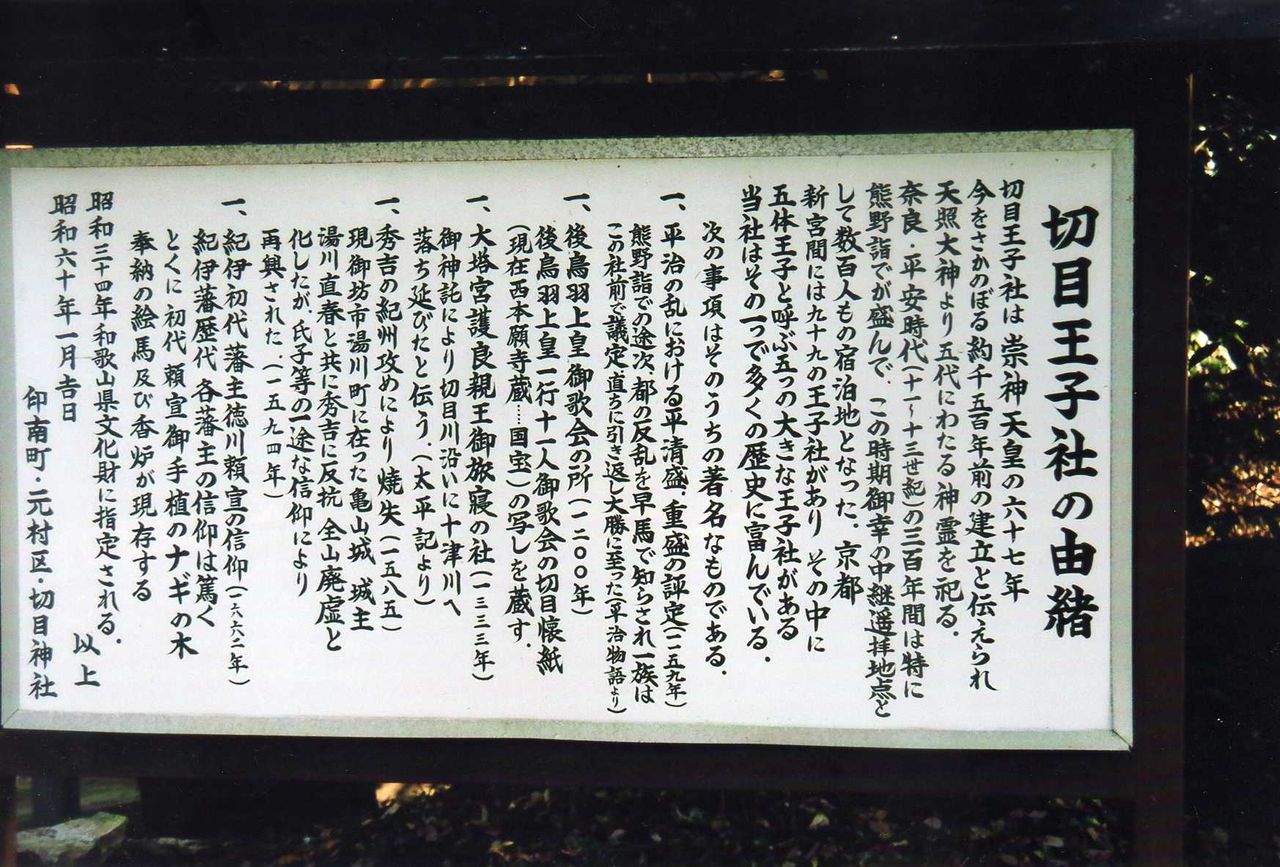 切目王子社の由緒
切目王子社は崇神天皇の六十七年
今をさかのぼる約千五百年前の建立と伝えられ
天照大神より五代にわたる神霊を祀る.
奈良・平安時代(十一～十三世紀)の三百年間は特に
熊野詣でが盛んで、この時期御幸の中継遥拝地点と
して数百人もの宿泊地となった.京都
新宮間には九十九の王子社があり その中に
五体王子と呼ぶ五つの大きな王子社がある
当社はその一つで多くの歴史に富んでいる.
次の事項はそのうちの著名なものである.
一、平治の乱における平清盛.重盛の評定(一一五九年)
熊野詣での途次、都の反乱を早馬で知らされ一族は
この社前で議定、直ちに引き返し大勝に至った(平治物語より)
一、後鳥羽上皇御歌会の所(一二〇〇年)
後鳥羽上皇一行十一人御歌会の切目懐紙
(現在西本願寺蔵……国宝)の写しを蔵す.
一、大塔宮護良親王御旅寝の社(一三三三年)
御神託により切目川沿いに十津川へ
落ち延びたと伝う.(太平記より)
一、秀吉の紀州攻めにより焼失(一五八五)
現御坊市湯川町に在った亀山城、城主
湯川直春と共に秀吉に反抗 全山廃虚と
化したが、氏子等の一途な信仰により
再興された.(一五九四年)
一、紀伊初代藩主徳川頼宣の信仰(一六六二年)
紀伊藩歴代各藩主の信仰は篤く
とくに初代頼宣御手植のナギの木
奉納の絵馬及び香炉が現存する
昭和三十四年和歌山県文化財に指定される.
以上
昭和六十年一月吉日
印南町・元村区・切目神社